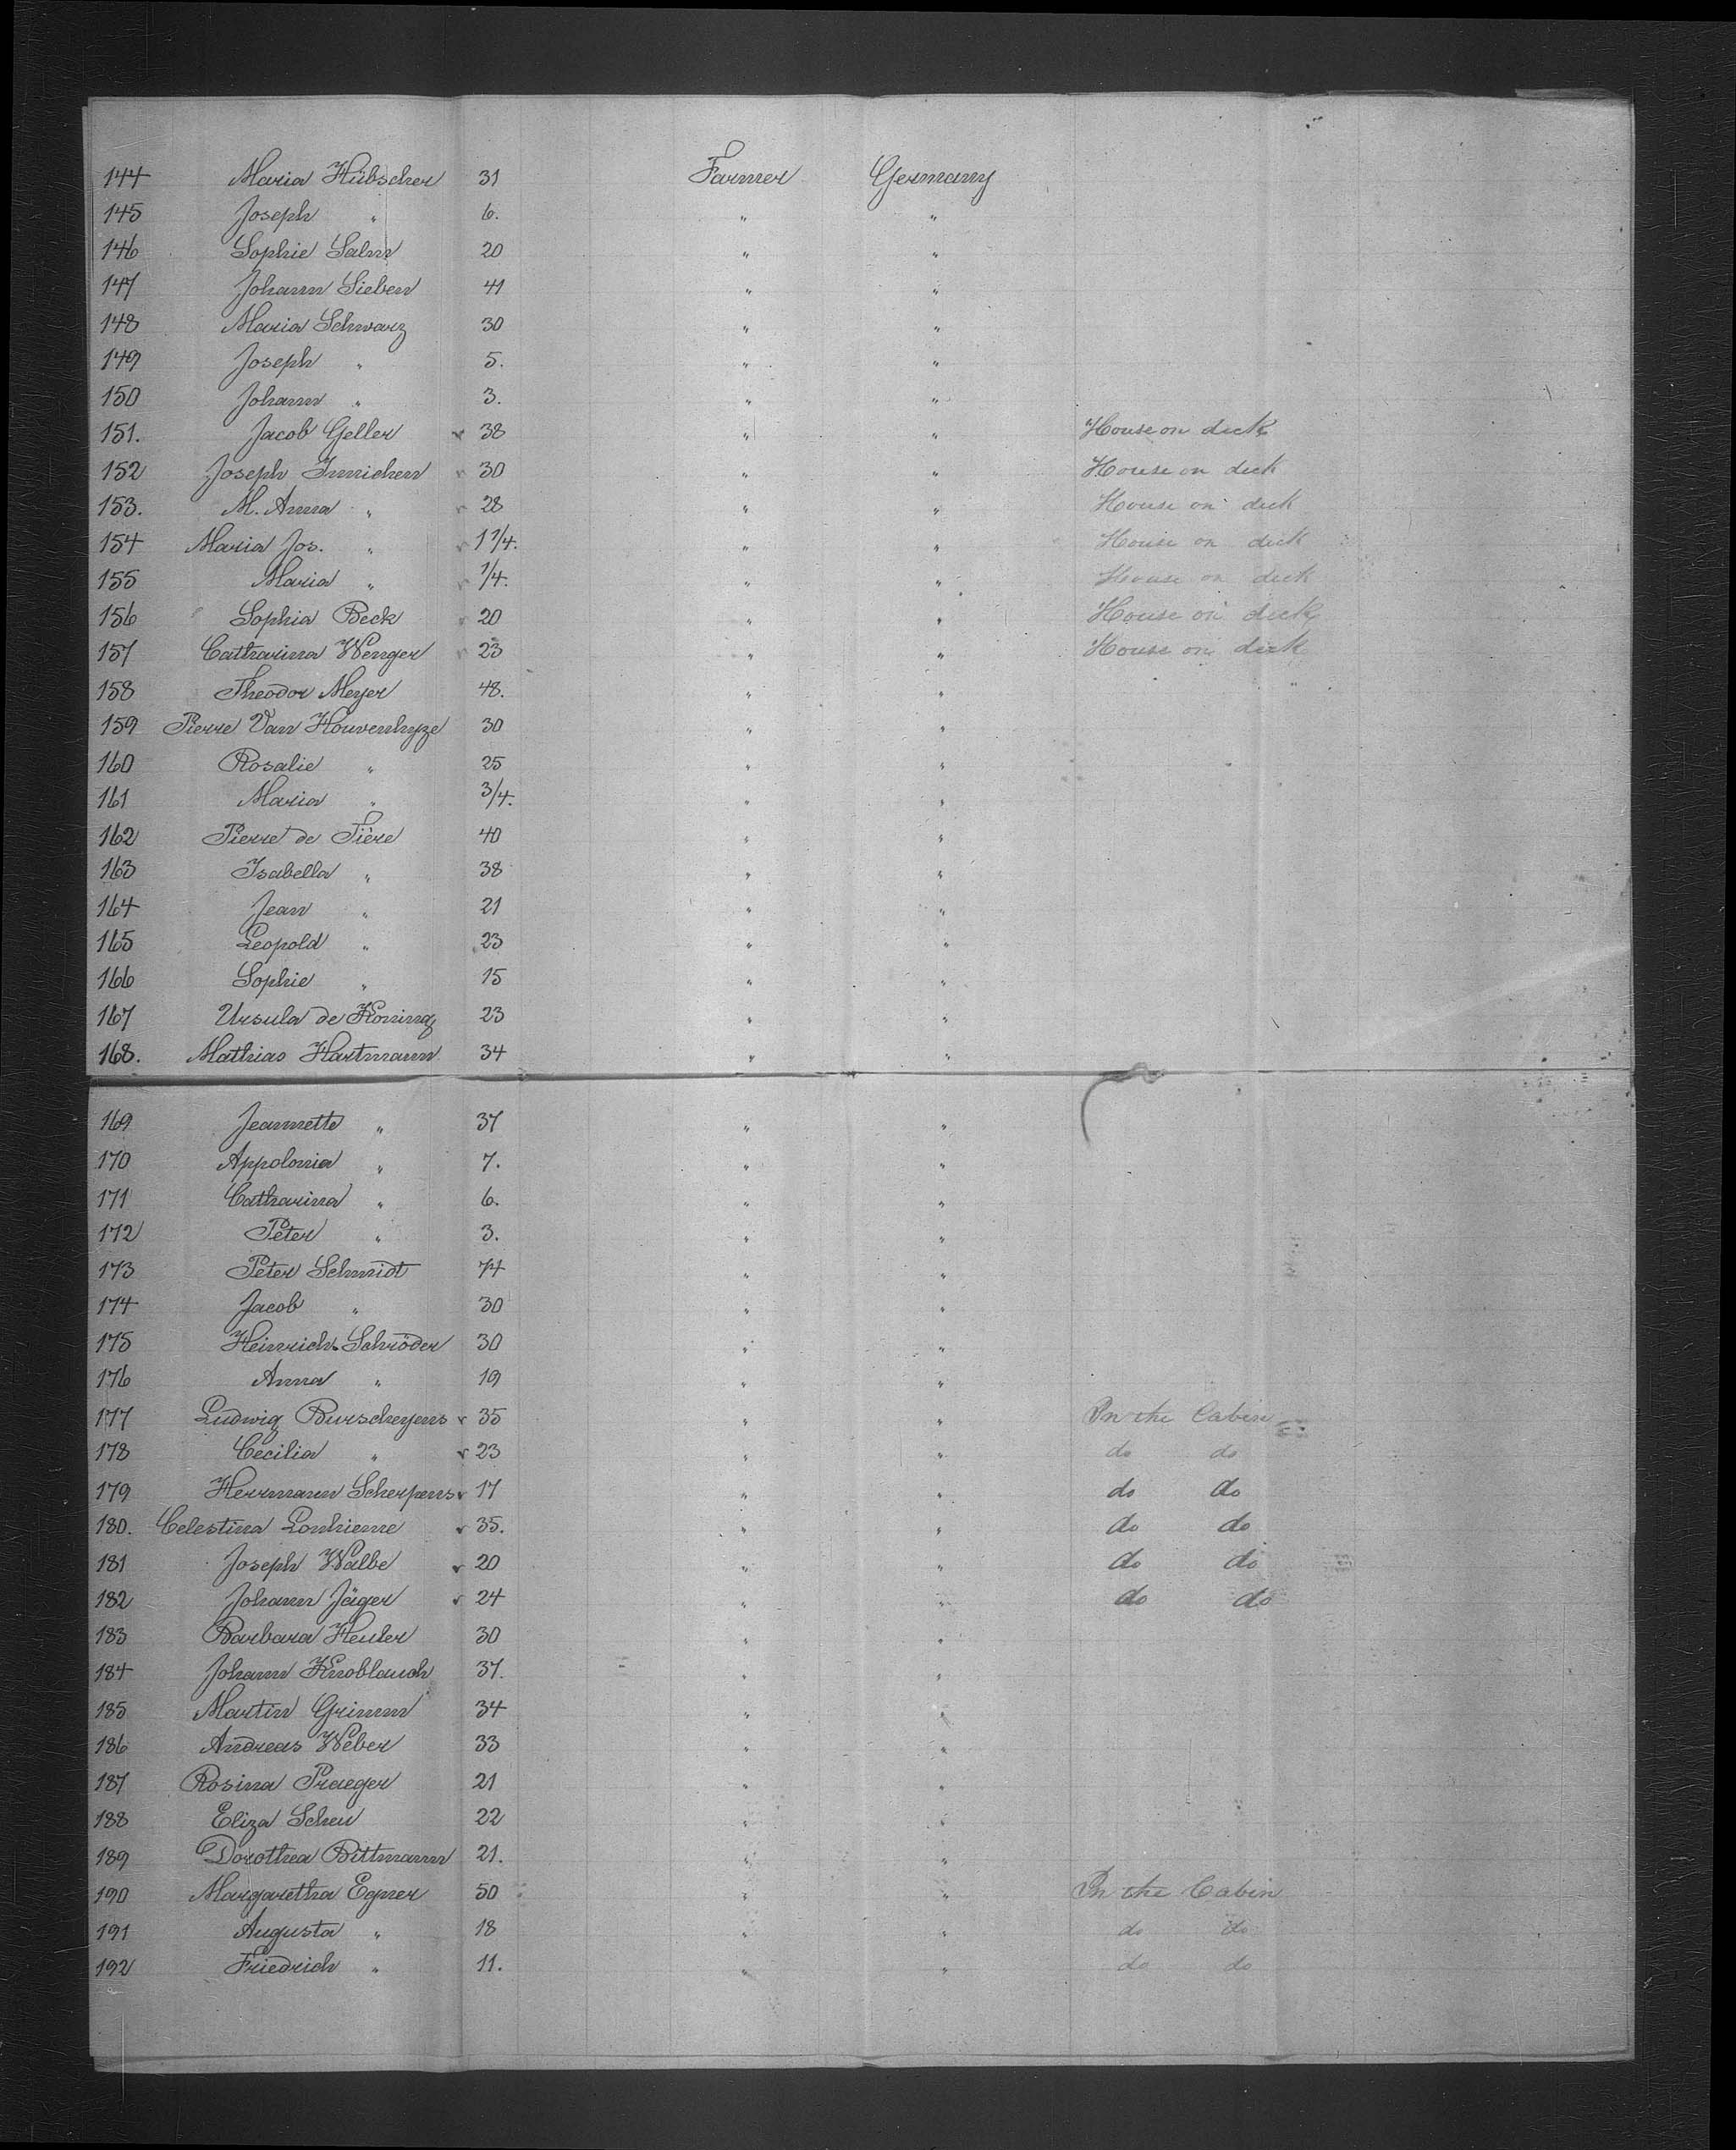 144 Maria Hübscher 31 Farmer Germany
145 Joseph " 6. " "
146 Sophie Salm 20 " "
147 Johann Sieben 41 " "
148 Maria Schwarz 30 " "
149 Joseph " 5. " "
150 Johann " 3. " "
151. Jacob Geller 38 " " House on deck
152 Joseph Immichen 30 " " House on deck
153. M. Anna " 28 " " House on deck
154 Maria Jos. " " " House on deck
155 Maria " 1/4. " " House on deck
156 Sophia Beck 20 " " House on deck
157 Catharina Wenger 23 " " House on deck
158 Theodor Meyer 48. " "
159 Pierre Van Houvenhyze 30 " "
160 Rosalie " 25 " "
161 Maria " 3/4. " "
162 Pierre de Tière 40 " "
163 Isabella " 38 " "
164 Jean " 21 " "
165 Leopold " 23 " "
166 Sophie " 15 " "
167 Ursula de Koning 23 " "
168. Mathias Hartmann 34 " "
169 Jeannette " 37 " "
170 Appolonia " 7. " "
171 Catharina " 6. " "
172 Peter " 3. " "
173 Peter Schmidt 74 " "
174 Jacob " 30 " "
175 Heinrich Schröder 30 " "
176 Anna " 19 " "
177 Ludwig Burscheyens 35 " " In the Cabin
178 Cecilia " 23 " " do do
179 Herrmann Scherpens 17 " " do do
180. Celestina Lonhienne 35. " " do do
181 Joseph Walbe 20 " " do do
182 Johann Jäger 24 " " do do
183 Barbara Heuler 30 " "
184 Johann Knoblauch 37. " "
185 Martin Grimm 34 " "
186 Andreas Weber 33 " "
187 Rosina Praeger 21 " "
188 Eliza Scheu 22 " "
189 Dorothea Bittmann 21. " "
190 Margaretha Egner 50 " " In the Cabin
191 Augusta " 18 " " do do
192 Friedrich " 11. " " do do